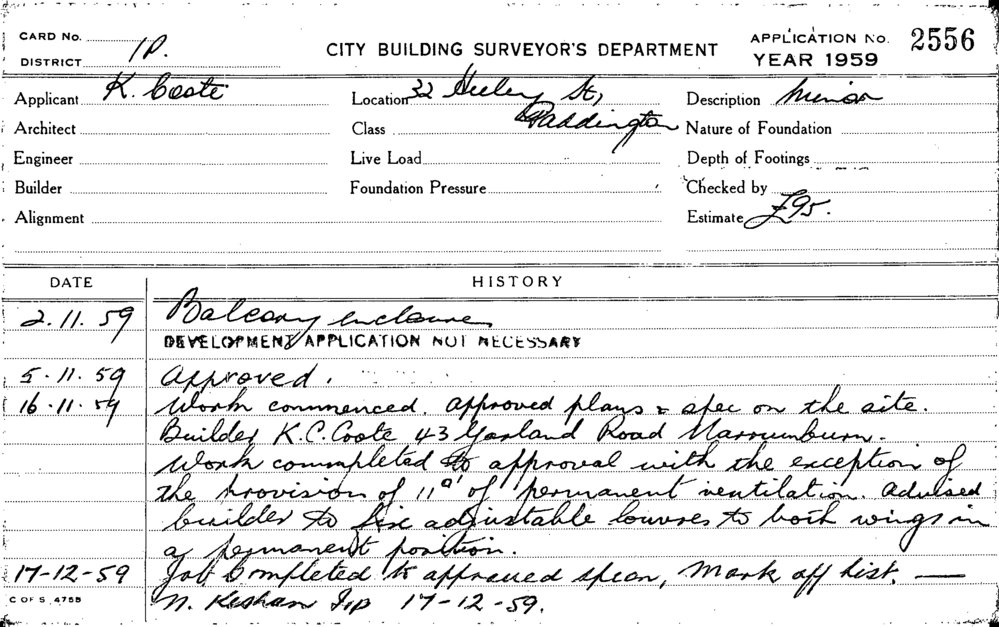 CARD No.
DISTRICT 1P.
CITY BUILDING SURVEYOR'S DEPARTMENT
APPLICATION No. 2556
YEAR 1959
Applicant K. Coote
Location 32 Heeley St,
Description Minor
Architect
Class Paddington
Nature of Foundation
Engineer
Live Load
Depth of Footings
Builder
Foundation Pressure
Checked by
Alignment
Estimate £95.
DATE HISTORY
2.11.59 Balcony enclosure
DEVELOPMENT APPLICATION NOT NECESSARY
5.11.59 Approved.
16.11.59 Work commenced. Approved plans & spec on the site.
Builder K.C. Coote 43 Road
Work commpleted to approval with the exception of
the provision of 11" of permanent ventilation. Advised
builder to fix adjustable louvres to both wings in
a permanent position.
17-12-59 Job Completed to approved specn, Mark off list. —
C OF S 475B
N. Insp 17-12-59.